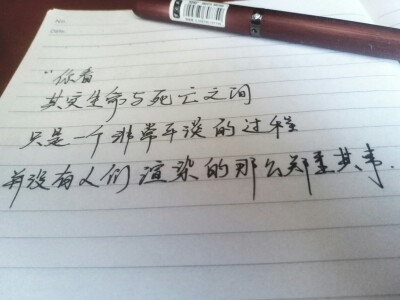 “你看
其实生命与死亡之间
只是一个非常平淡的过程
并没有人们渲染的那么郑重其事.